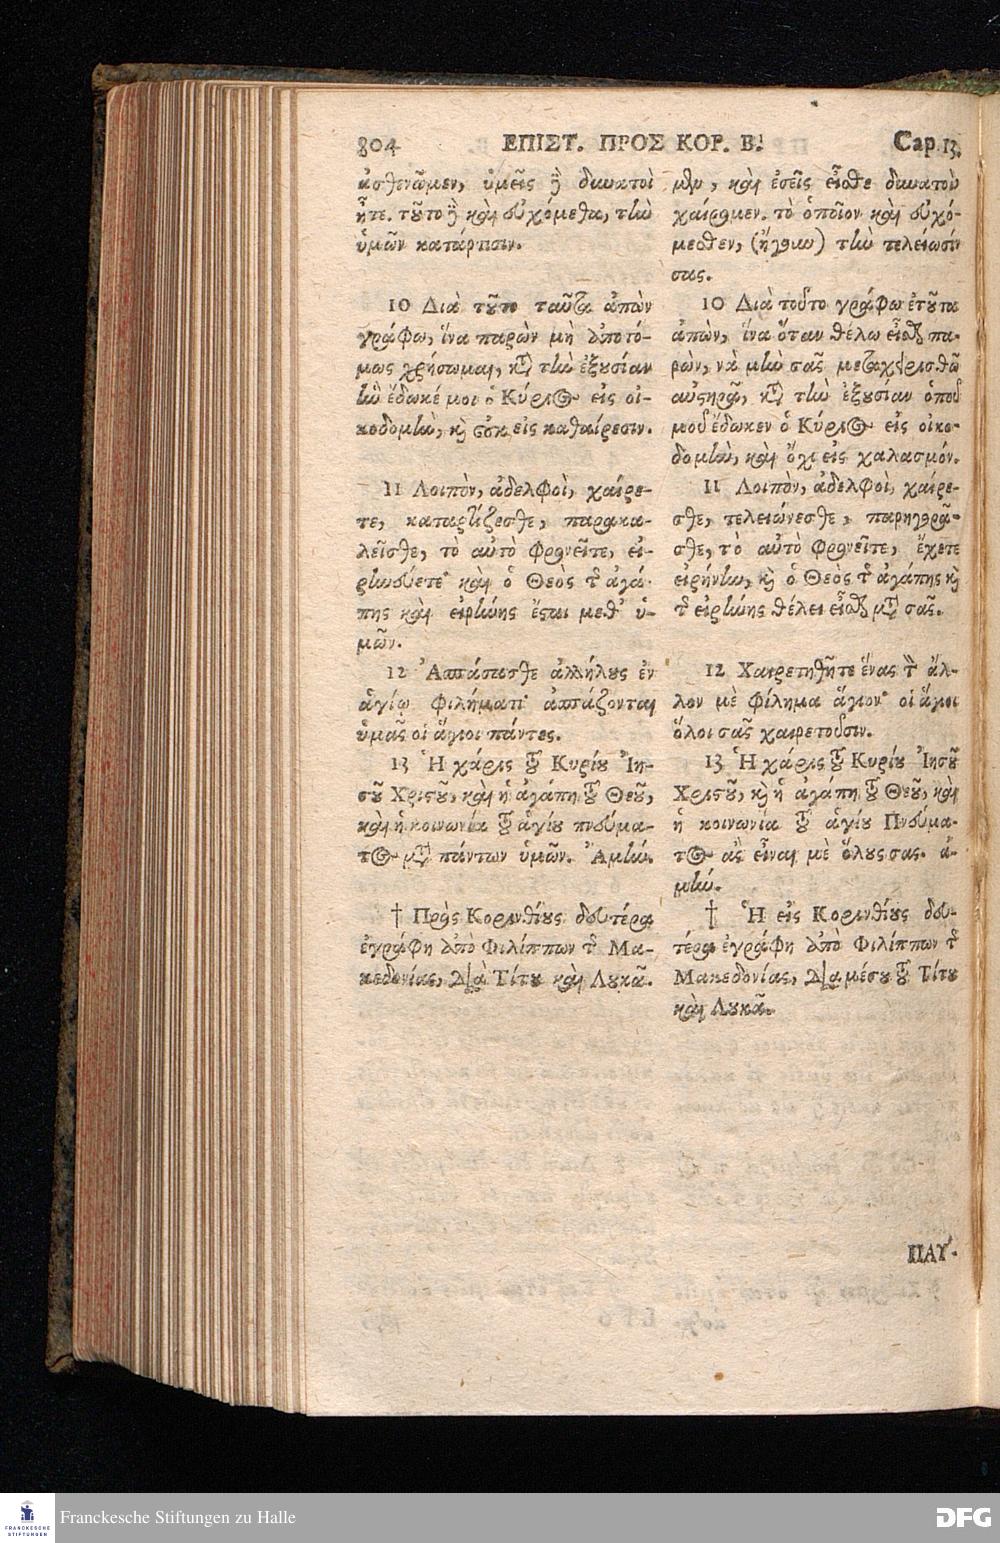 804 ΕΠΙΣΤ. ΠΡΟΣ ΚΟΡ. Β. Cap 13.
ἀσθενῶμεν, ὑμεῖς δὲ δυνατοὶ
ἦτε. τοῦτο δὲ καὶ εὐχόμεθα, τὴν
ὑμῶν κατάρτισιν.
10 Διὰ τοῦτο ταῦτα ἀπὼν
γράφω, ἵνα παρὼν μὴ ἀποτό-
μως χρήσωμαι, κατὰ τὴν ἐξουσίαν
ἣν ἔδωκέ μοι ὁ Κύριος εἰς οἰ-
κοδομὴν, καὶ οὐκ εἰς καθαίρεσιν.
11 Λοιπὸν, ἀδελφοὶ, χαίρε-
τε, καταρτίζεσθε, παρακα-
λεῖσθε, τὸ αὐτὸ φρονεῖτε, εἰ-
ρηνεύετε· καὶ ὁ Θεὸς τῆς ἀγά-
πης καὶ εἰρήνης ἔσται μεθ' ὑ-
μῶν.
12 Ἀσπάσασθε ἀλλήλους ἐν
ἁγίῳ φιλήματι· ἀσπάζονται
ὑμᾶς οἱ ἅγιοι πάντες.
13 Ἡ χάρις τοῦ Κυρίου Ἰη-
σοῦ Χριστοῦ, καὶ ἡ ἀγάπη τοῦ Θεοῦ,
καὶ ἡ κοινωνία τοῦ ἁγίου πνεύμα-
τος μετὰ πάντων ὑμῶν. Ἀμήν.
† Πρὸς Κορινθίους δευτέρα
ἐγράφη ἀπὸ Φιλίππων τῆς Μα-
κεδονίας, διὰ Τίτου καὶ Λουκᾶ.
μὲν, καὶ ἐσεῖς εἶσθε δυνατοὶ
χαίρομεν. τὸ ὁποῖον καὶ εὐχό-
μεσθεν, (ἤγουν) τὴν τελείωσίν
σας.
10 Διὰ τοῦτο γράφω ἐτοῦτα
ἀπὼν, ἵνα ὅταν θέλω εἶσθαι πα-
ρὼν, νὰ μὴν σᾶς μεταχειρισθῶ
αὐστηρῶς, κατὰ τὴν ἐξουσίαν ὁποῦ
μοῦ ἔδωκεν ὁ Κύριος εἰς οἰκο-
δομὴν, καὶ ὄχι εἰς χαλασμόν.
11 Λοιπὸν, ἀδελφοὶ, χαίρε-
σθε, τελειώνεσθε, παρηγορᾶ-
σθε, τὸ αὐτὸ φρονεῖτε, ἔχετε
εἰρήνην, καὶ ὁ Θεὸς τῆς ἀγάπης καὶ
τῆς εἰρήνης θέλει εἶσθαι μετὰ σᾶς.
12 Χαιρετηθῆτε ἕνας τὸν ἄλ-
λον μὲ φίλημα ἅγιον· οἱ ἅγιοι
ὅλοι σᾶς χαιρετοῦσιν.
13 Ἡ χάρις τοῦ Κυρίου Ἰησοῦ
Χριστοῦ, καὶ ἡ ἀγάπη τοῦ Θεοῦ, καὶ
ἡ κοινωνία τοῦ ἁγίου Πνεύμα-
τος ἂς εἶναι μὲ ὅλους σας. ἀ-
μήν.
† Ἡ εἰς Κορινθίους δευ-
τέρα ἐγράφη ἀπὸ Φιλίππων τῆς
Μακεδονίας, διὰ μέσου τοῦ Τίτου
καὶ Λουκᾶ.
ΠΑΥ-
FRANCKESCHE
STIFTUNGEN
Franckesche Stiftungen zu Halle
DFG